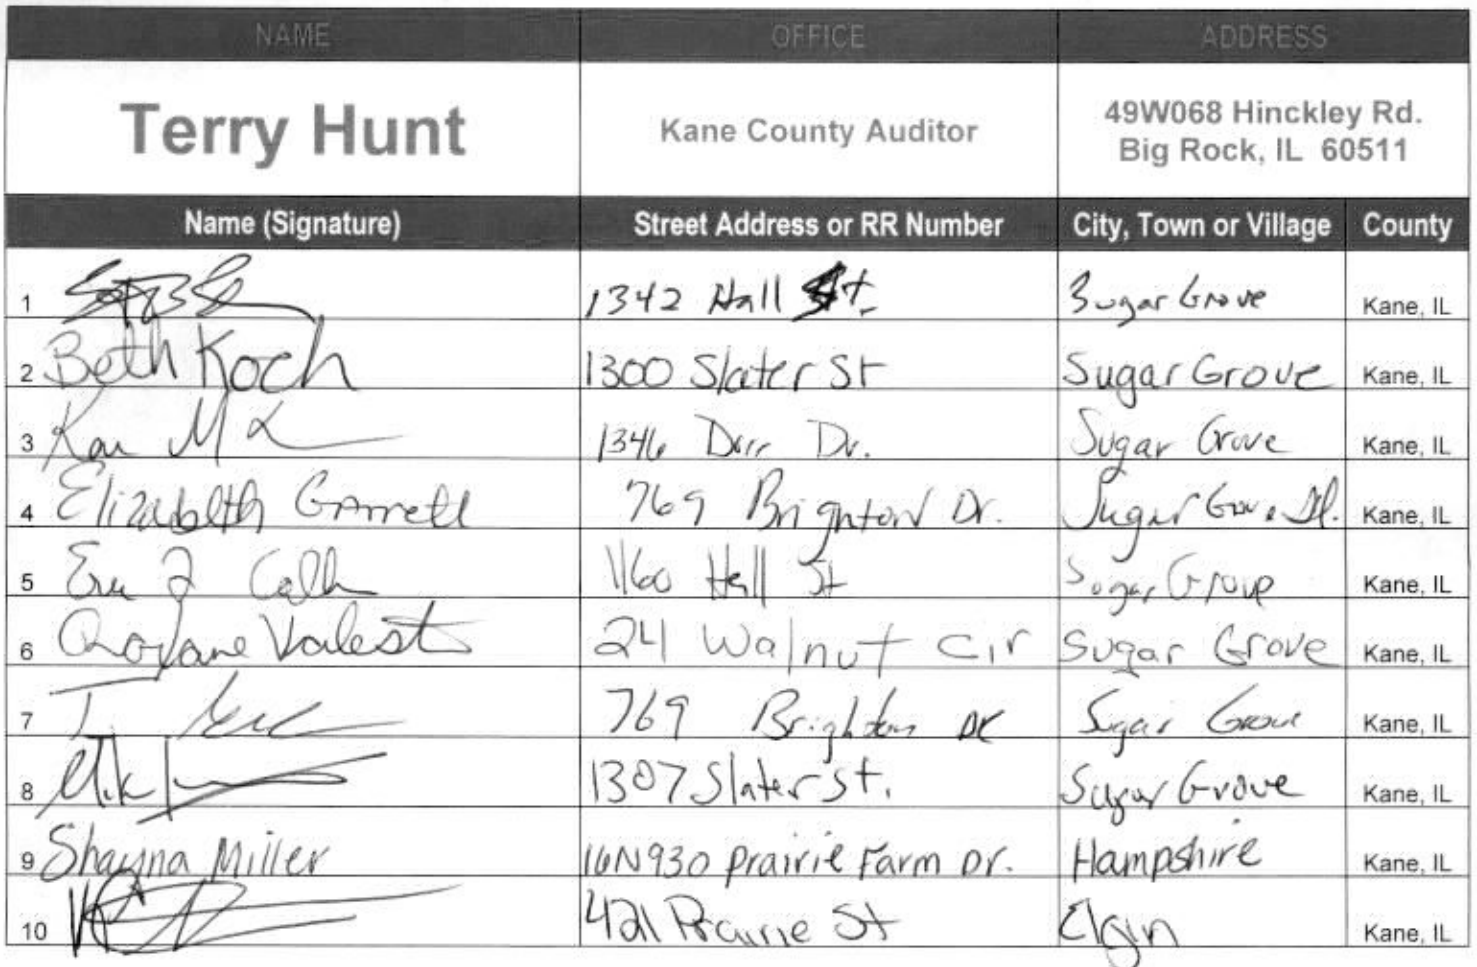 NAME OFFICE ADDRESS
Terry Hunt Kane County Auditor 49W068 Hinckley Rd.
Big Rock, IL 60511
Name (Signature) Street Address or RR Number City, Town or Village County
1 1342 Hall St. Sugar Grove Kane, IL
2 Beth Koch 1300 Slater St Sugar Grove Kane, IL
3 1346 Dr. Sugar Grove Kane, IL
4 Elizabeth Garrett 769 Brighton Dr. Sugar Grove Il. Kane, IL
5 1160 Hall St Sugar Grove Kane, IL
6 24 Walnut Cir Sugar Grove Kane, IL
7 769 Brighton DR Sugar Grove Kane, IL
8 1307 Slater St. Sugar Grove Kane, IL
9 Shayna Miller 16N930 Prairie Farm Dr. Hampshire Kane, IL
10 421 Prairie St Elgin Kane, IL